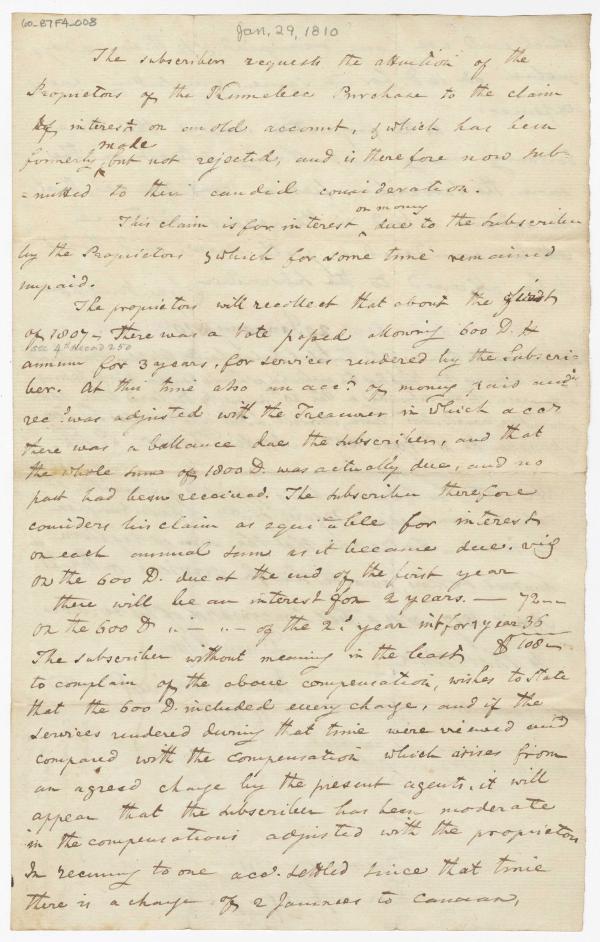 60_87F4_008
Jan, 29, 1810
The subscriber requests the attention of the
Proprietors of the Kennebec Purchase to the claim
of interest on an old account, & which has been
made
formerly, but not rejected, and is therefore now sub-
=mitted to their candid consideration.
on money
This claim is for interest due to the subscriber
by the Proprietors & which for some time remained
unpaid.
The proprietors will recollect that about the
of 1807. There was a Vote passed allowing 600 D. pr
see 4th Record 250
annum for 3 years, for services rendered by the Subscri-
ber. At this time also an acct. of money paid and
recd. was adjusted with the Treasurer in which acct
there was a ballance due the subscriber, and that
the whole sum of 1800 D. was actually due, and no
part had been received. The subscriber therefore
considers his claim as equitable for interest
on each annual sum as it became due. viz
On the 600 D. due at the end of the first year
there will be an interest for 2 years. — 72—
On the 600 D „ — „ — of the 2d year int for 1 year 36
$ 108—
The subscriber without meaning in the least
to complain of the above compensation, wishes to state
that the 600 D. included every charge, and if the
services rendered during that time were viewed and
compared with the compensation which arises from
an agreed charge by the present agents, it will
appear that the subscriber has been moderate
in the compensations adjusted with the proprietors
In recurring to one acct. settled since that time
there is a charge of 2 Journies to Canaan,